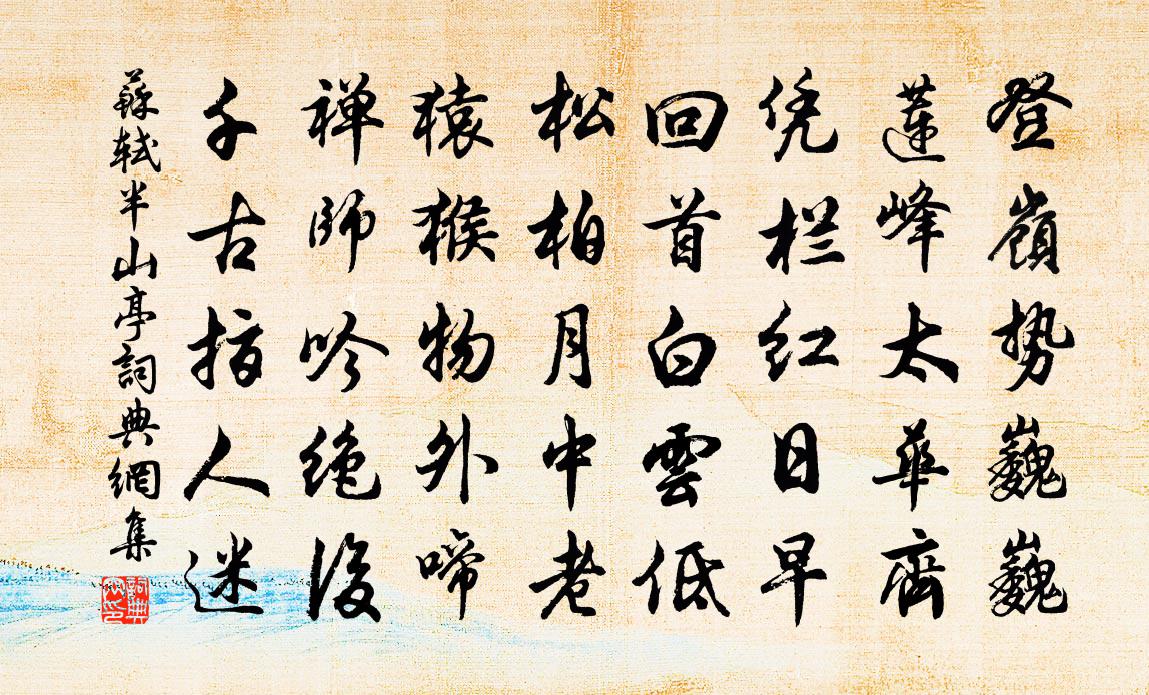 登嶺势巍巍
莲峰太華齊
凭栏红日早
回首白雲低
松柏月中老
猿猴物外啼
禅師吟绝後
千古指人迷
蘇轼半山亭詞典網集